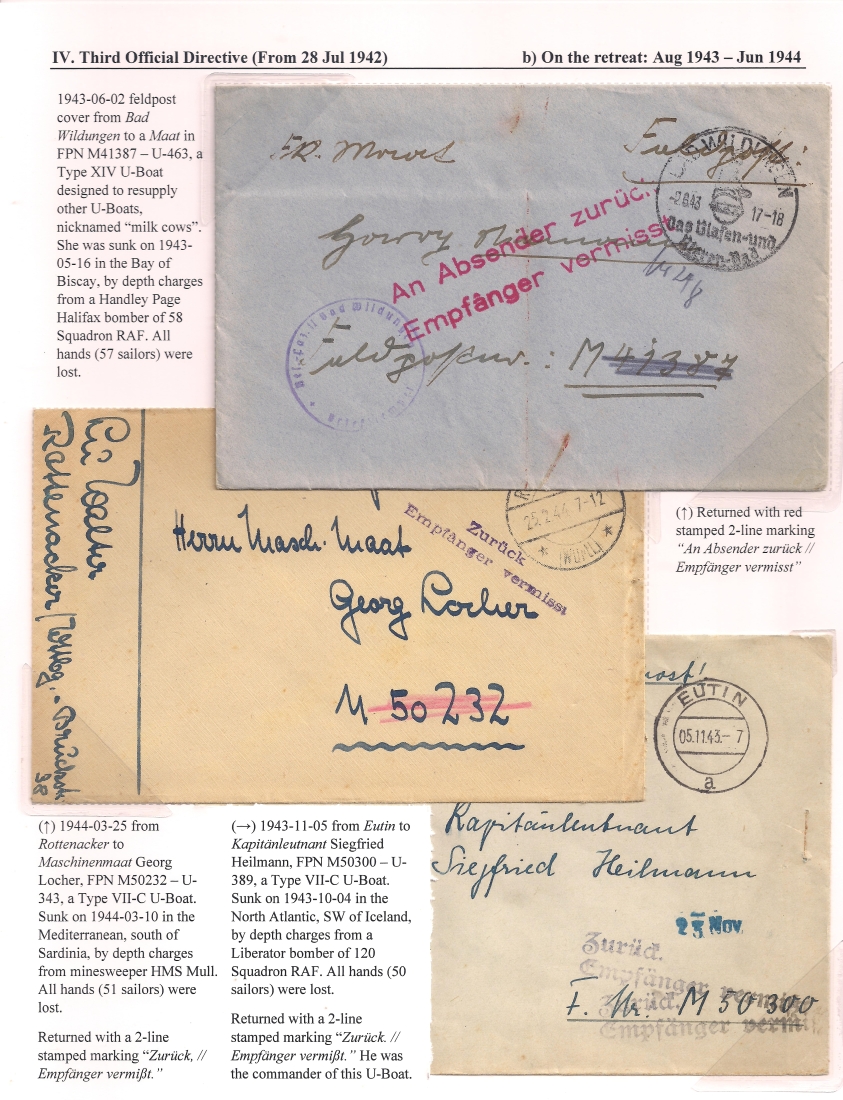 IV. Third Official Directive (From 28 Jul 1942) b) On the retreat: Aug 1943 – Jun 1944
1943-06-02 feldpost
cover from Bad
Wildungen to a Maat in
FPN M41387 – U-463, a
Type XIV U-Boat
designed to resupply
other U-Boats,
nicknamed “milk cows”.
She was sunk on 1943-
05-16 in the Bay of
Biscay, by depth charges
from a Handley Page
Halifax bomber of 58
Squadron RAF. All
hands (57 sailors) were
lost.
Feldpost.
BAD WILDUNGEN
-2.6.43 17-18
Das Blasen-und
Nieren-Bad
An Absender zurück.
Empfänger vermisst
Feldpostnr.: M 41387
(↑) Returned with red
stamped 2-line marking
“An Absender zurück //
Empfänger vermisst”
Walter
Rottenacker
25.2.44 7-12
(WÜRTT)
Zurück
Empfänger vermisst
Herrn Masch. Maat
Georg Locher
M 50232
EUTIN
05.11.43.- 7
a
Kapitänleutnant
Siegfried Heilmann
23 Nov.
Zurück.
Empfänger vermißt
Zurück.
Empfänger vermißt
F. Nr. M 50300
(↑) 1944-03-25 from
Rottenacker to
Maschinenmaat Georg
Locher, FPN M50232 – U-
343, a Type VII-C U-Boat.
Sunk on 1944-03-10 in the
Mediterranean, south of
Sardinia, by depth charges
from minesweeper HMS Mull.
All hands (51 sailors) were
lost.
Returned with a 2-line
stamped marking “Zurück, //
Empfänger vermißt.”
(→) 1943-11-05 from Eutin to
Kapitänleutnant Siegfried
Heilmann, FPN M50300 – U-
389, a Type VII-C U-Boat.
Sunk on 1943-10-04 in the
North Atlantic, SW of Iceland,
by depth charges from a
Liberator bomber of 120
Squadron RAF. All hands (50
sailors) were lost.
Returned with a 2-line
stamped marking “Zurück. //
Empfänger vermißt.” He was
the commander of this U-Boat.